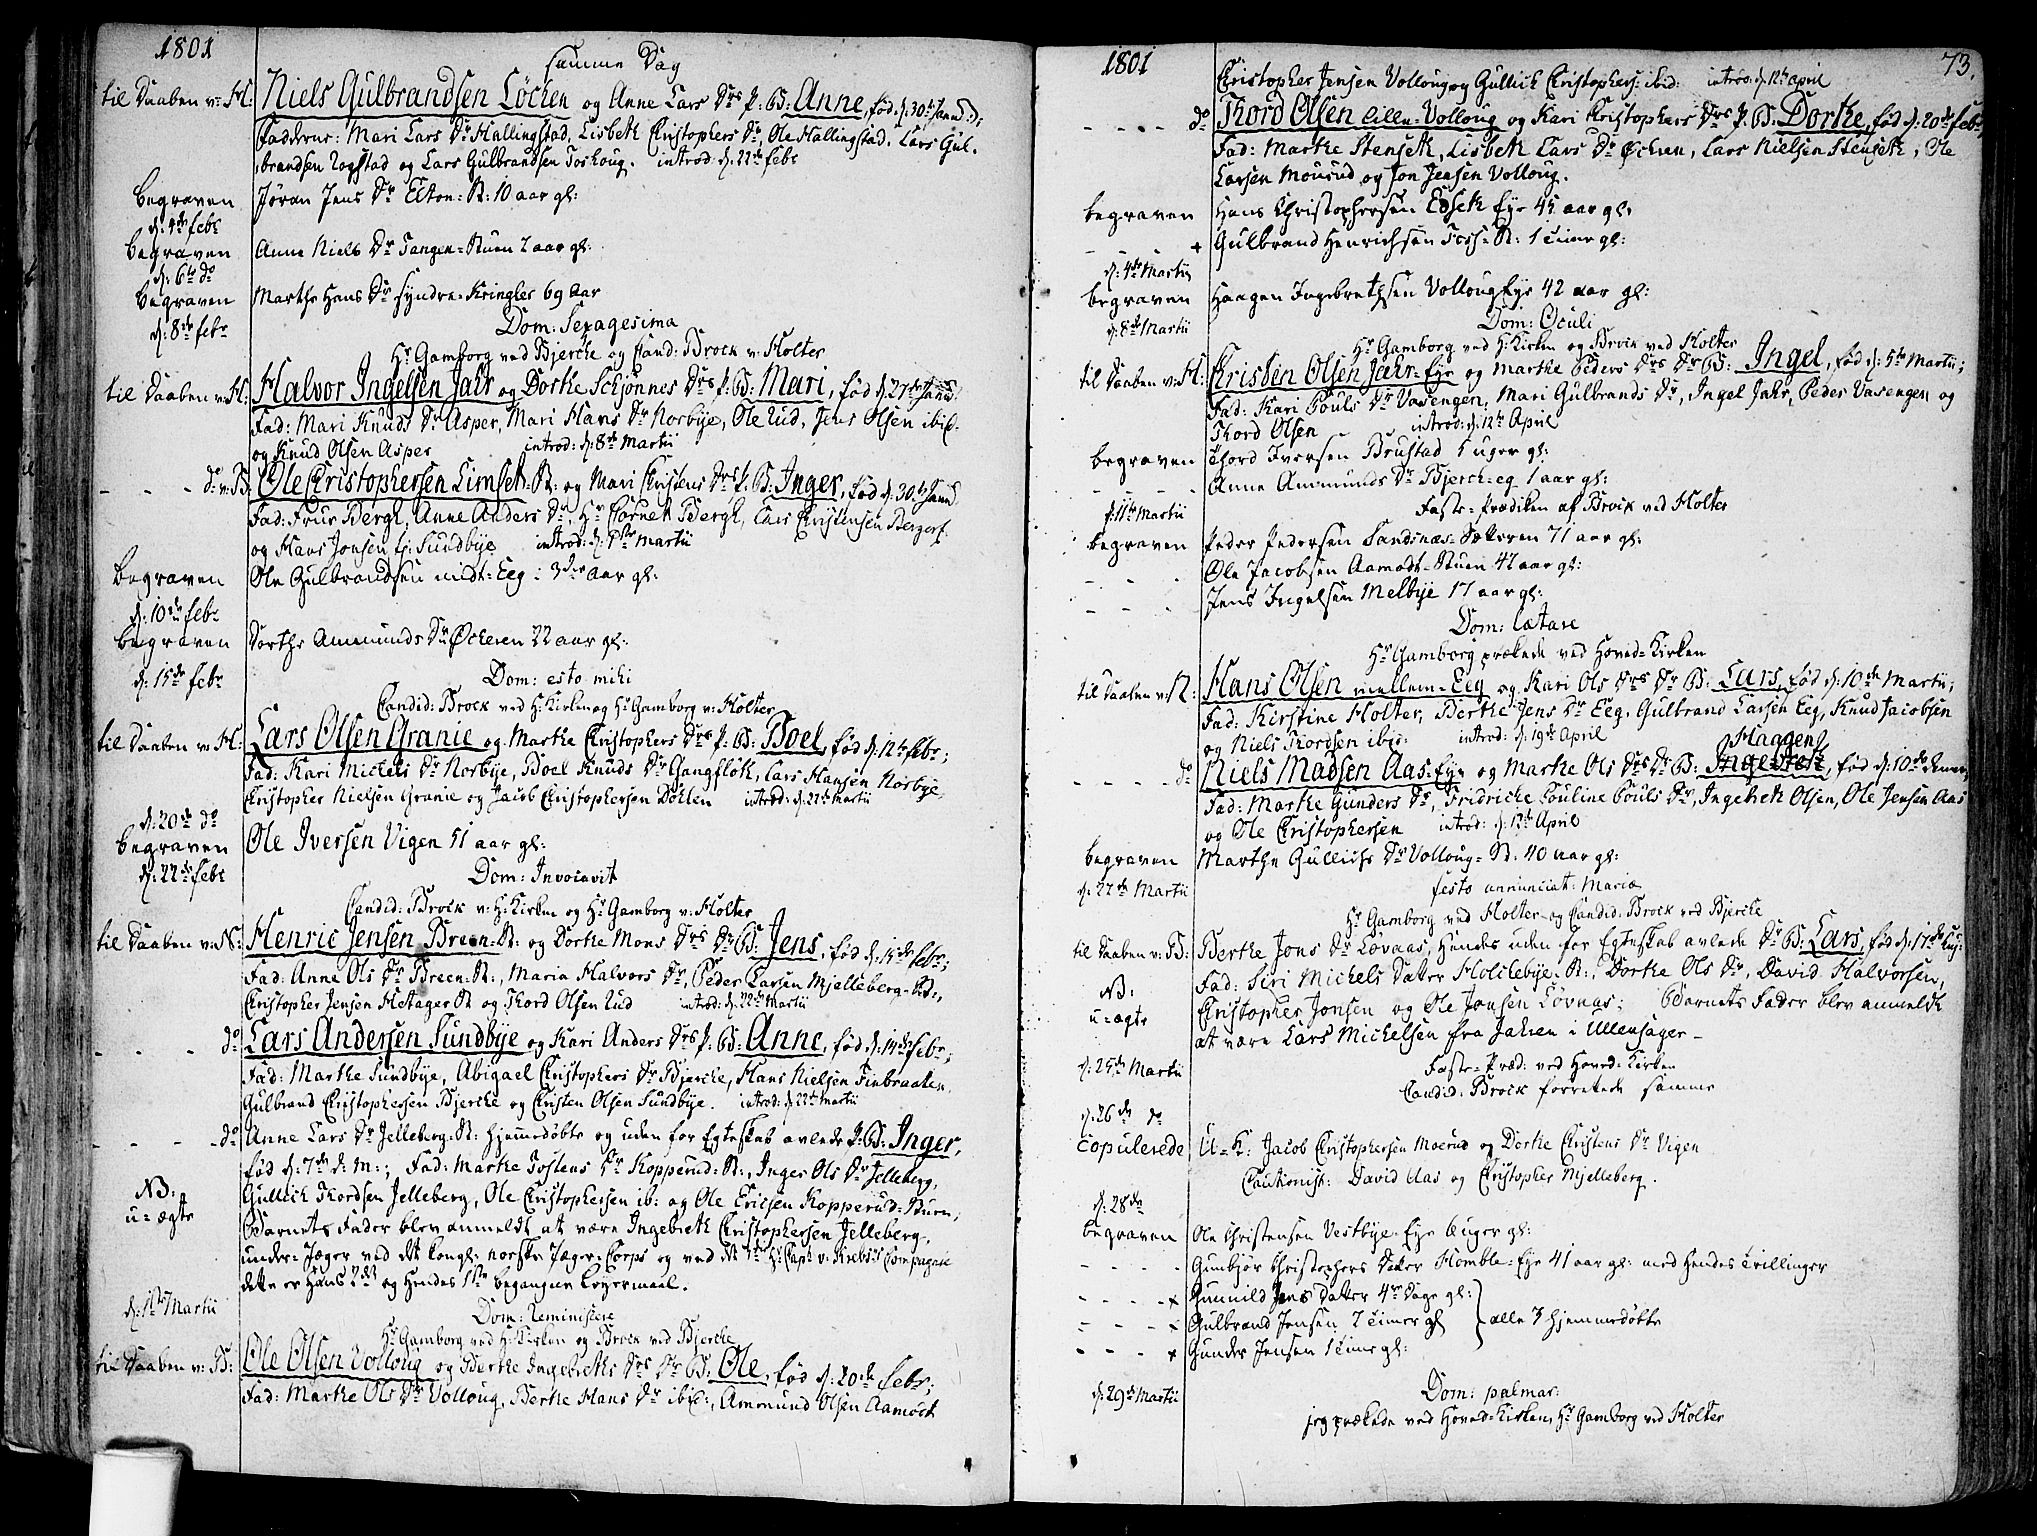 1801
samme Dag
til Daaben v: H: Niels Gulbrandsen Löcken og Anne Lars Drs P. B: Anne, fød d: 30te Janu
Fadderne: Mari Lars Dr Hallingstad, Lisbeth Christophers Dr, Ole Hallingstad, Lars Gul-
brandsen Logstad og Lars Gulbrandsen Toshoug. introd: d: 22de febr
begraven Jøran Jens Dr Elton-R: 10 aar gl:
d: 4de febr
begraven Anne Niels Dr Tangen-Stuen 2 aar gl:
d: 6te do
begraven Marthe Hans Dr syndre-Kringler 69 aar
d: 8de febr
Dom: Sexagesima
Hr Gamborg ved Bjercke og Cand: Brock v: Holter
til Daaben v: H: Halvor Ingelsen Jahr og Dorthe Schjønnes Drs P. B: Mari, fød d: 27de Janu:
Fad: Mari Knuds Dr Asper, Mari Hans Dr Norbye, Ole Lud, Jens Olsen ibid:
og Knud Olsen Asper introd: d: 8de Martii
do v: B: Ole Christophersen Limseth-R: og Mari Christens Drs P. B: Inger, fød d: 30te Janu
Fad: Frue Bergh, Anne Anders Dr, Hr Cornet Bergh, Lars Christensen Berger
og Hans Jonsen Sundbye introd: d: 1ste Martii
begraven Ole Gulbrandsen midt-Eeg i 3die aar gl:
d: 10de febr
begraven Dorthe Ammunds Dr Øckeren 22 aar gl:
d: 15de febr
Dom: esto mihi
Candid: Brock ved H: Kirken og Hr Gamborg v: Holter
til Daaben v: H: Lars Olsen Granie og Marthe Christophers Drs P. B: Boel, fød d: 12te febr;
Fad: Kari Michels Dr Norbye, Boel Knuds Dr Gangfløt, Lars Hansen Norbye
Christopher Nielsen Granie og Jacob Christophersen Döhlen introd: d: 22de Martii
d: 20de do
begraven Ole Iversen Vigen 51 aar gl:
d: 22de febr
Dom: Invocavit
Candid: Brock v: H: Kirken og Hr Gamborg v: Holter
til Daaben v: N: Henric Jensen Breen-R: og Dorthe Mons Drs Dr B: Jens, fød d: 15de febr;
Fad: Anne Ols Dr Breen-R:, Maria Halvors Dr, Peder Larsen Mjelleberg-
Christopher Jensen Hetager R og Thord Olsen Lud introd: d: 22de Martii
do Lars Andersen Sundbye og Kari Anders Drs P. B: Anne, fød d: 14de febr;
Fad: Marthe Sundbye, Abigael Christophers Dr Bjercke, Hans Nielsen Finbraaten,
Gulbrand Christophersen Bjercke og Christen Olsen Sundbye. introd: d: 22de Martii
do Anne Lars Dr Jelleberg-R: hjemmedøbte og uden for Egteskab avlede P. B: Inger,
fød d: 7de d: m:; Fad: Marthe Tostens Dr Kopperud-R:, Inger Ols Dr Jelleberg,
NB: Gullich Thordsen Jelleberg, Ole Christophersen ib: og Ole Ericsen Kopperud-Stuen;
u-ægte Barnets Fader blev anmeldt at være Ingebreth Christophersen Jelleberg,
under-Jæger ved det kongl: norske Jæger-Corps og ved det 1ste H: Capt: v: Krebs's Compagnie
dette er Hans 2det og Hendes 1ste begangne Leyermaal.
d: 1ste Martii
Dom: Reminiscere
Hr Gamborg ved H: Kirken og Brock ved Bjercke
til Daaben v: B: Ole Olsen Volloug og Berthe Ingebreths Drs Dr B: Ole, fød d: 20de febr;
Fad: Marthe Ols Dr Volloug, Berthe Hans Dr ibid:, Ammund Olsen Aamodt
1801
73.
Christopher Jensen Volloug og Gullich Christophers: ibid: introd: d: 12te april
do Thord Olsen Lille-Volloug og Kari Christophers Drs P. B: Dorthe, fød d: 20de febr
Fad: Marthe Stenseth, Lisbeth Lars Dr Øchern, Lars Nielsen Stenseth, Ole
Larsen Mourud og Jon Jensen Volloug.
begraven Hans Christophersen Edseth Eye 45 aar gl:
Gulbrand Henrichsen Foss-R: 1 time gl:
d: 4de Martii
begraven Haagen Ingebrethsen Volloug Eye 42 aar gl:
d: 8de Martii
Dom: Oculi
Hr Gamborg ved H: Kirken og Brock ved Holter
til Daaben v: H: Christen Olsen Jahr-Eye og Marthe Peders Drs Dr B: Ingel, fød d: 5te Martii;
Fad: Kari Pouls Dr Vasengen, Mari Gulbrands Dr, Ingel Jahr, Peder Vasengen og
Thord Olsen introd: d: 12te April
begraven Thord Iversen Brustad 5 uger gl:
Anne Ammunds Dr Bjerck-eg 1 aar gl:
d: 11te Martii
Faste-Prædiken af Brock ved Holter
begraven Peder Pedersen Sandsnæs-Setteren 71 aar gl:
Ole Jacobsen Aamodt-Stuen 42 aar gl:
Jens Ingelsen Melbye 17 aar gl:
Dom: Lætare
Hr Gamborg prækede ved Hoved-Kirken
til Daaben v: N: Hans Olsen mellem-Eeg og Kari Ols Drs Dr B: Lars, fød d: 10de Martii;
Fad: Kirstine Holter, Berthe Jens Dr Eeg, Gulbrand Larsen Eeg, Knud Jacobsen
og Niels Thordsen ibid: introd: d: 19de April
Haagen
do Niels Madsen Aas-Eye og Marthe Ols Drs Dr B: Ingebreth, fød d: 10de
Fad: Marthe Gunders Dr, Fridriche Pouline Pouls Dr, Ingebreth Olsen, Ole Jensen Aas
og Ole Christophersen introd: d: 12te April
begraven Marthe Gullichs Dr Volloug-R. 40 aar gl:
d: 22de Martii
festo annunciat: Mariæ
Hr Gamborg ved Holter og Candid: Brock ved Bjercke
til Daaben v: B: Berthe Jons Dr Løvaas, Hendes uden for Egteskab avlede Dr B: Lars, fød d: 17de
NB: Fad: Siri Michels Datter Holckebye-R:, Dorthe Ols Dr, David Halvorsen,
u-ægte Christopher Jonsen og Ole Jonsen Løvaas; Barnets Fader blev anmeldt
at være Lars Michelsen fra Jahren i Ullensager-
d: 25de Martii
Faste-Præd: ved Hoved-Kirken
Candid: Brock forrettede samme
d: 26de do
copulerede U-K: Jacob Christophersen Moerud og Dorthe Christens Dr Vigen
Cautionist: David Aas og Christopher Mjelleberg.
d: 28de
begraven Ole Christensen Vestbye-Eye 6 uger gl:
Gunbjør Christophers Datter Homble-Eye 41 aar gl: med Hendes Trillinger
Gunnild Jens Datter 4re Dage gl:
Gulbrand Jensen 7 timer gl } alle 3 hjemmedøbte
Gunder Jensen 1 time gl:
d: 29de Martii
Dom: palmar:
jeg prækede ved Hoved-Kirken, Hr Gamborg ved Holter